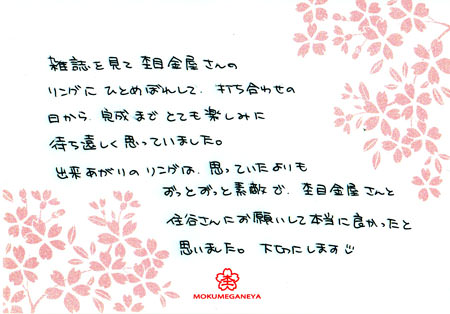 雑誌を見て杢目金屋さんの
リングにひとめぼれして、打ち合わせの
日から、完成までとても楽しみに
待ち遠しく思っていました。
出来あがりのリングは、思っていたよりも
ずっとずっと素敵で、杢目金屋さんと
住谷さんにお願いして本当に良かったと
思いました。大切にします
MOKUMEGANEYA